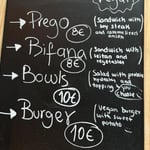 → Prego 8€
(Sandwich with
soy steak
and caramelized
onions
→ Bifana 8€
(Sandwich with
seitan and
vegetables
→ Bowls 10€
Salad with protein
topping
you
choose
→ Burger 10€
(Vegan burger
with sweet
potato